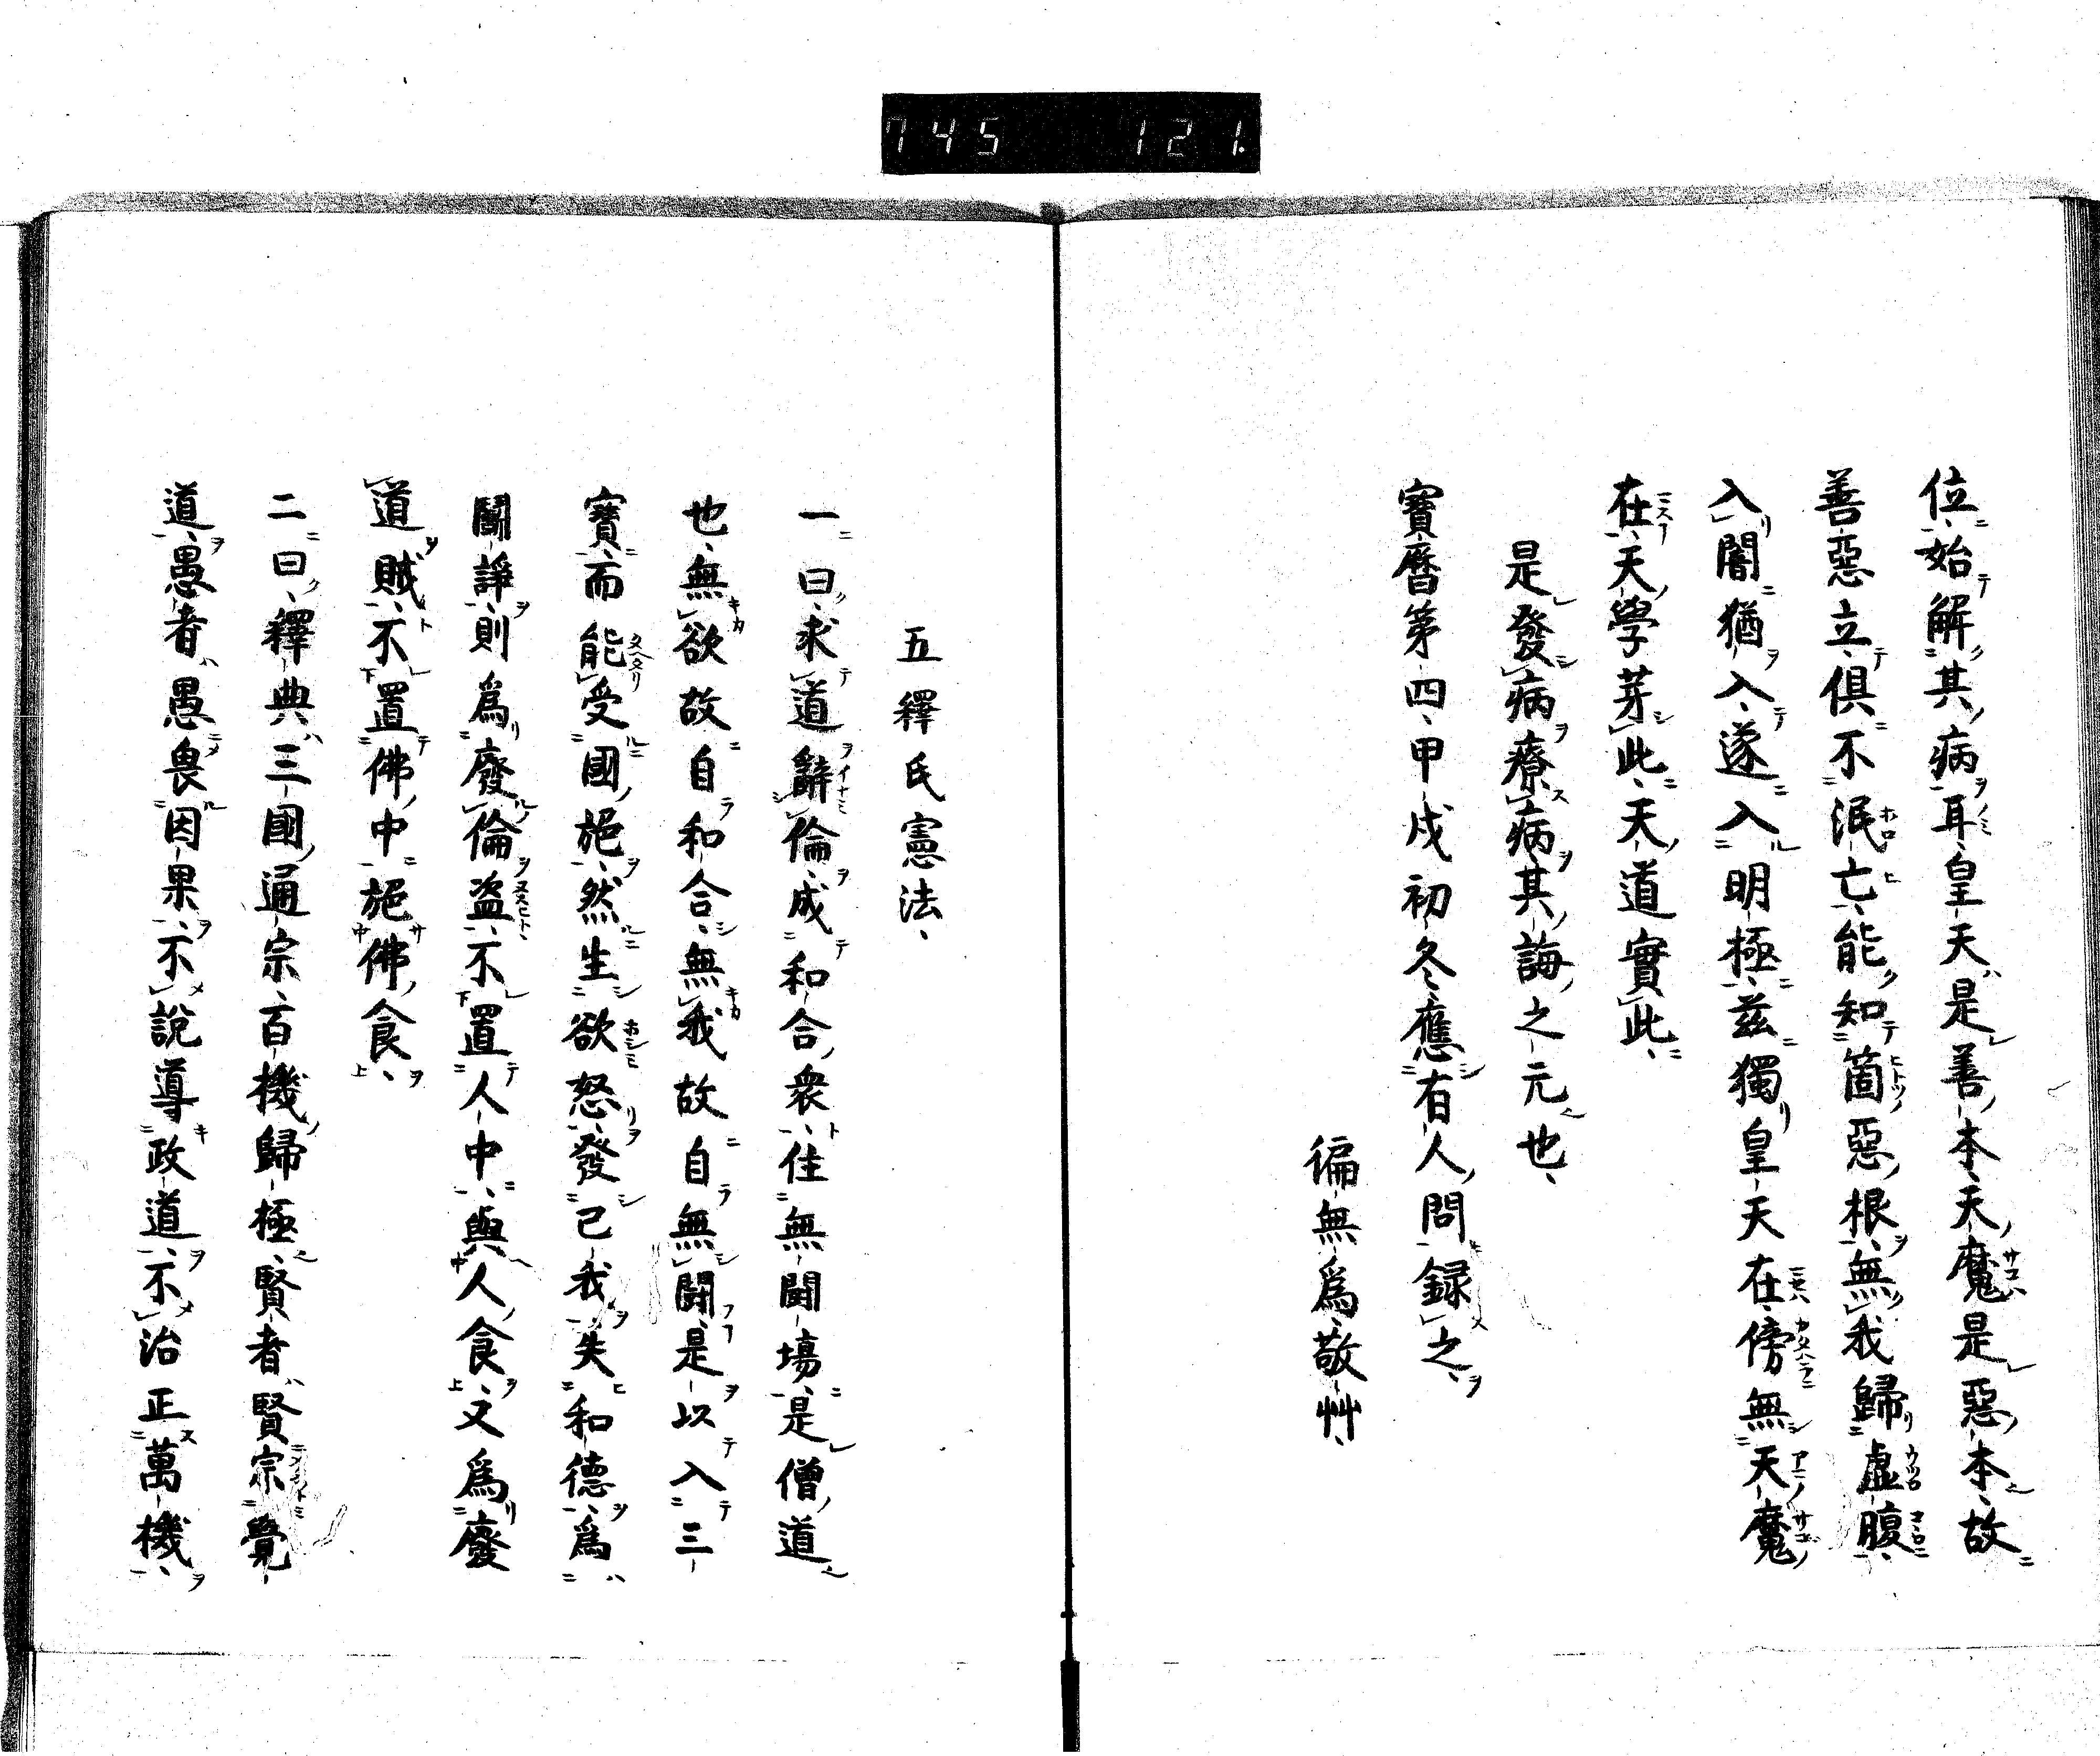 745 121.
位始解其病耳皇天是善本天魔是惡本故
善惡立俱不泯亡能知箇惡根無我歸虛腹
入闇猶入遂入明極茲獨皇天在傍無天魔
在天學芽此天道實此
是發病療病其誨之元也
寶曆第四甲戌初冬應有人問録之
徧無為敬艸
五釋氏憲法
一曰求道辭倫成和合衆住無鬪場是僧道
也無欲故自和合無我故自無鬪是以入三
寶而能受國施然生欲怒發己我失和德為
鬪諍則為廢倫盜不置人中與人食又為廢
道賊不置佛中施佛食
二曰釋典三國通宗百機歸極賢者賢宗覺
道愚者愚畏因果不說導政道不治正萬機